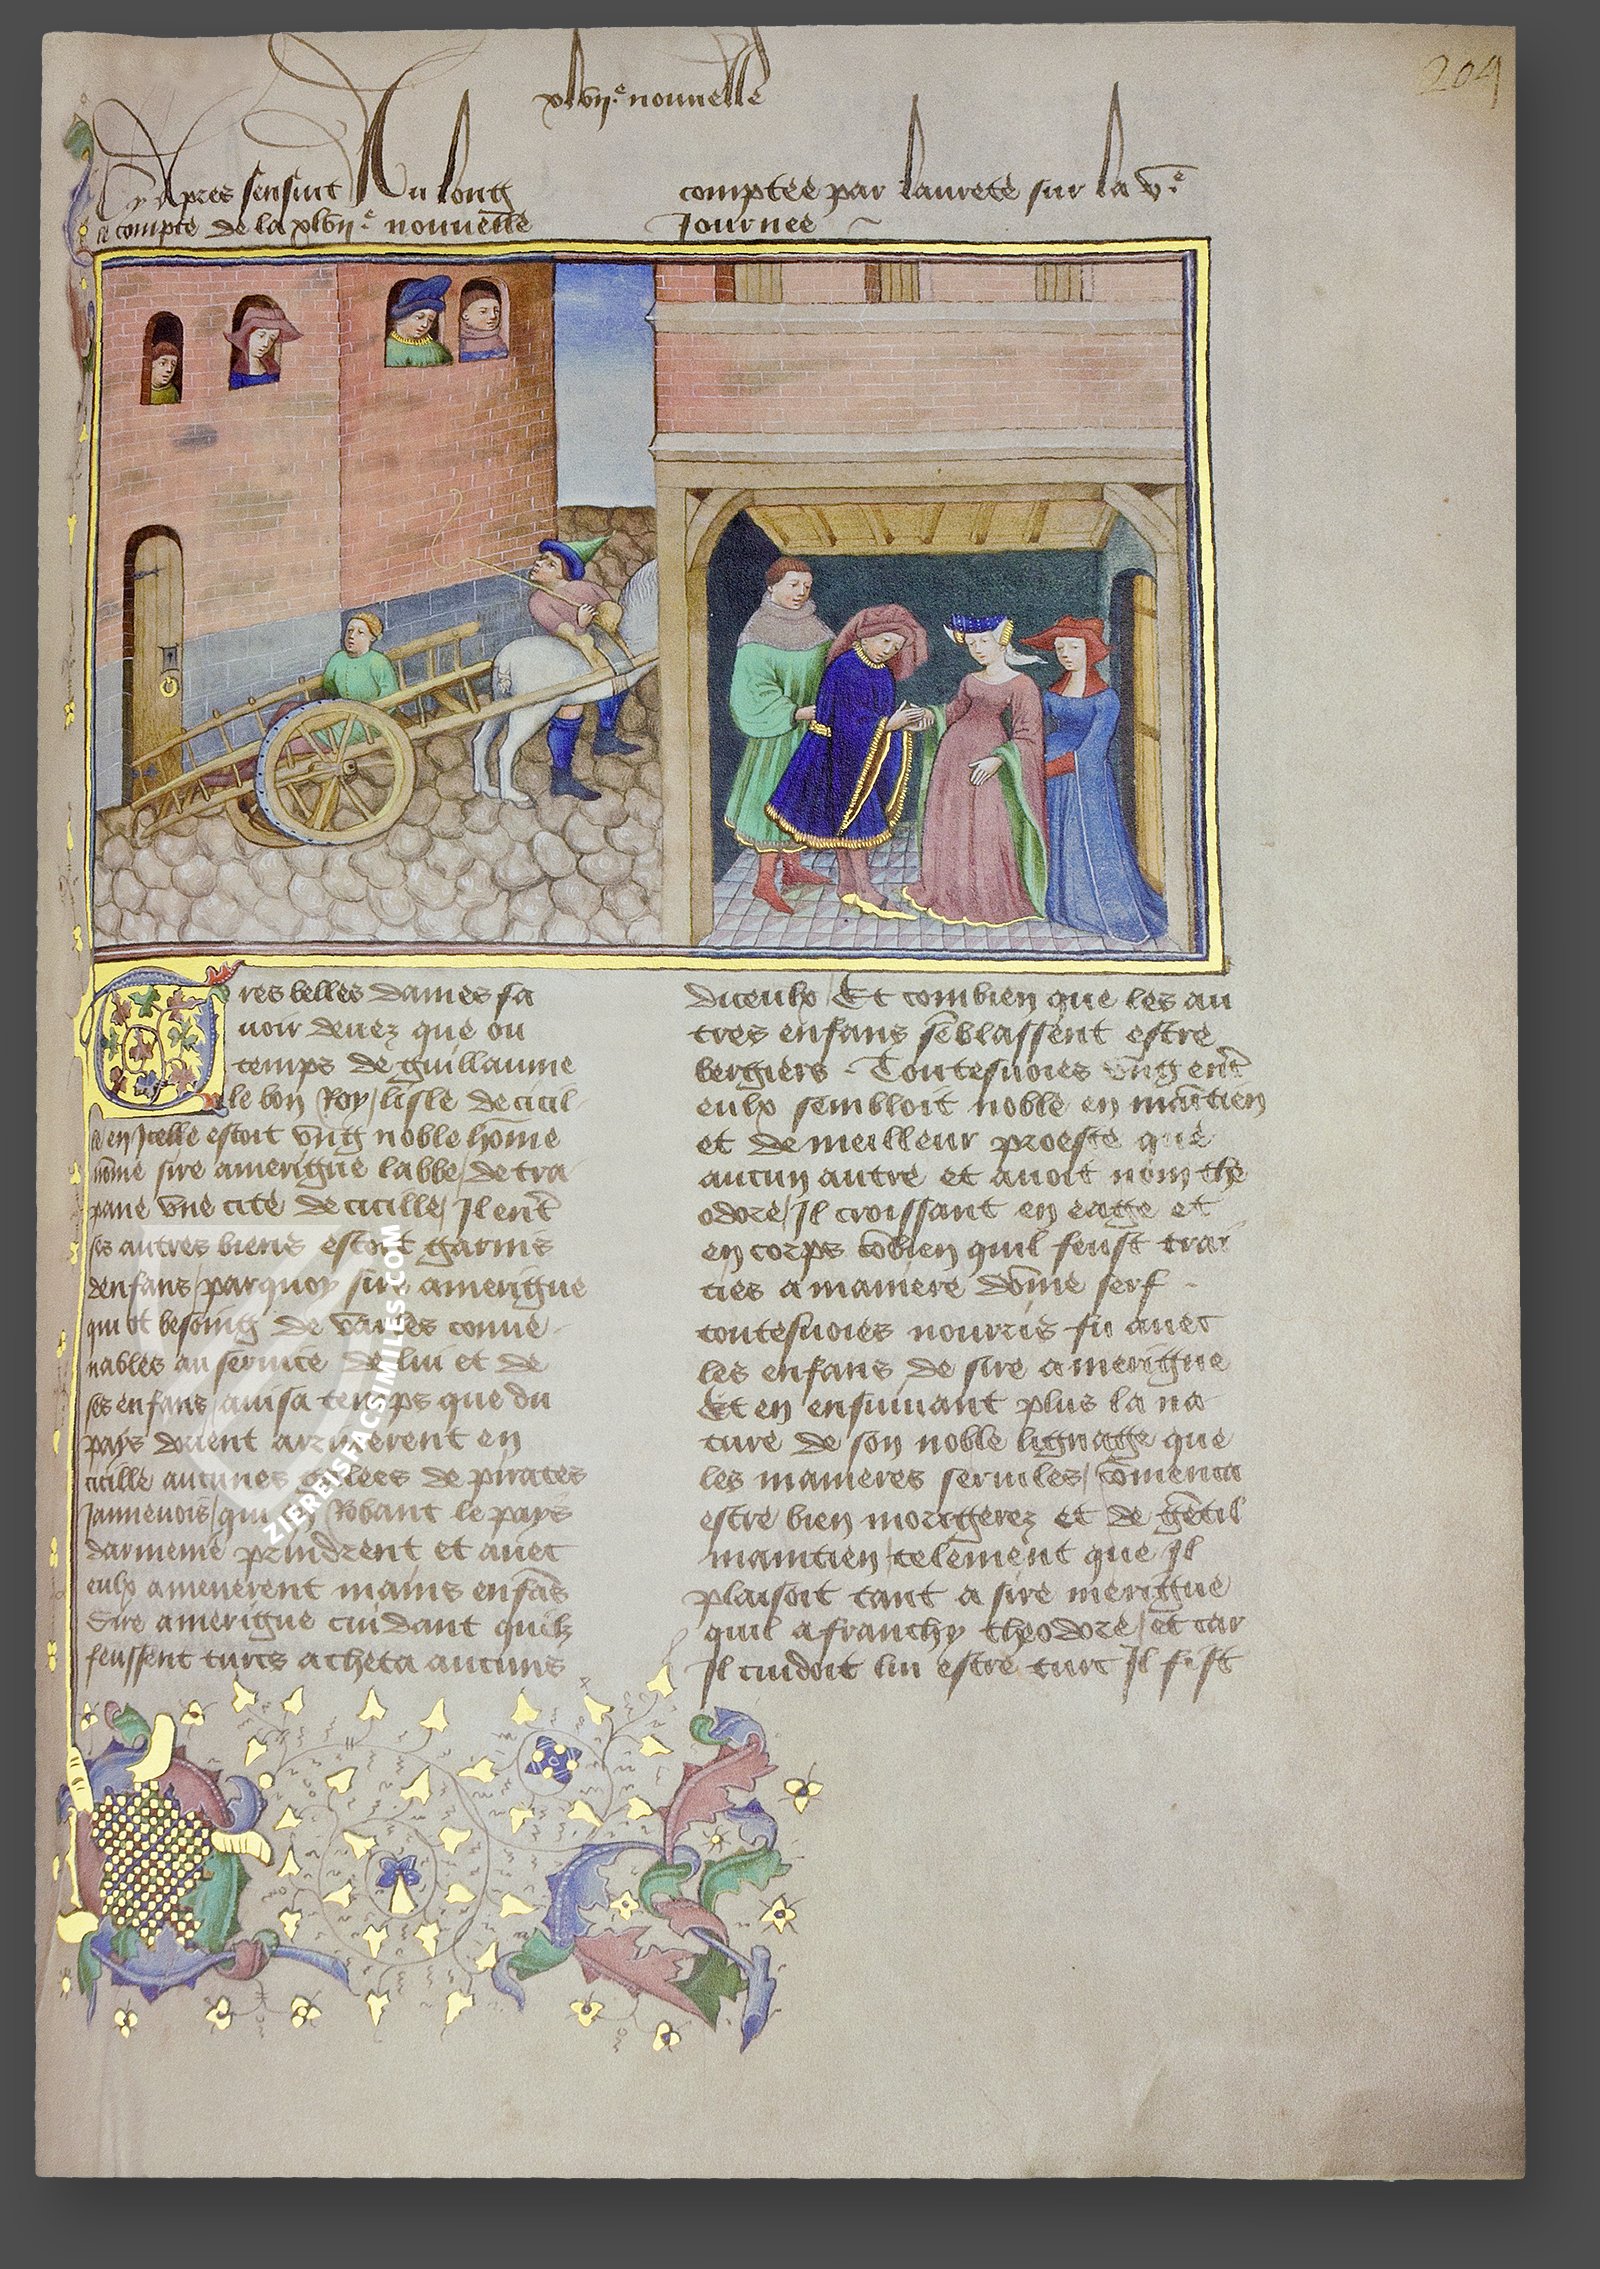 204
xlviie nouvelle
Cy apres sensuit Au long
le compte de la xlviie nouvelle
comptee par laurete sur la ve
Journee
Tres belles dames sa
voir devez que ou
temps de guillaume
le bon Roy / lisle de cicil
le en Icelle estoit vng noble home
nome sire amerigue labbe / de tra
pane vne cite de cicille / Il entre
ses autres biens estoit garnis
denfans / parquoy sire amerigue
qui ot besoing de varles conve
nables au service de lui et de
ses enfans / avisa temps que du
pays dorient arriverent en
cicille aucunes galees de pirates
Jannevois / qui en Robant le pays
darmenie prindrent et avec
eulx amenerent mains enfans
Sire amerigue cuidant quilz
feussent turcs acheta aucuns
diceulx / Et combien que les au
tres enfans semblassent estre
bergiers . Toutesvoies vng entre
eulx sembloit noble en maintien
et de meilleur proesse que
aucun autre et avoit nom the
odore / Il croissant en eage et
en corps combien quil feust trai
ties a maniere dome serf
toutesvoies nourris fu avec
les enfans de sire amerigue
Et en ensuivant plus la na
ture de son noble lignage que
les manieres serviles / comenca
estre bien morigerez et de gentil
maintien / telement que Il
plaisoit tant a sire merigue
quil afranchy theodore / et car
Il cuidoit lui estre turc Il fist
ZIEREISFACSIMILES.COM